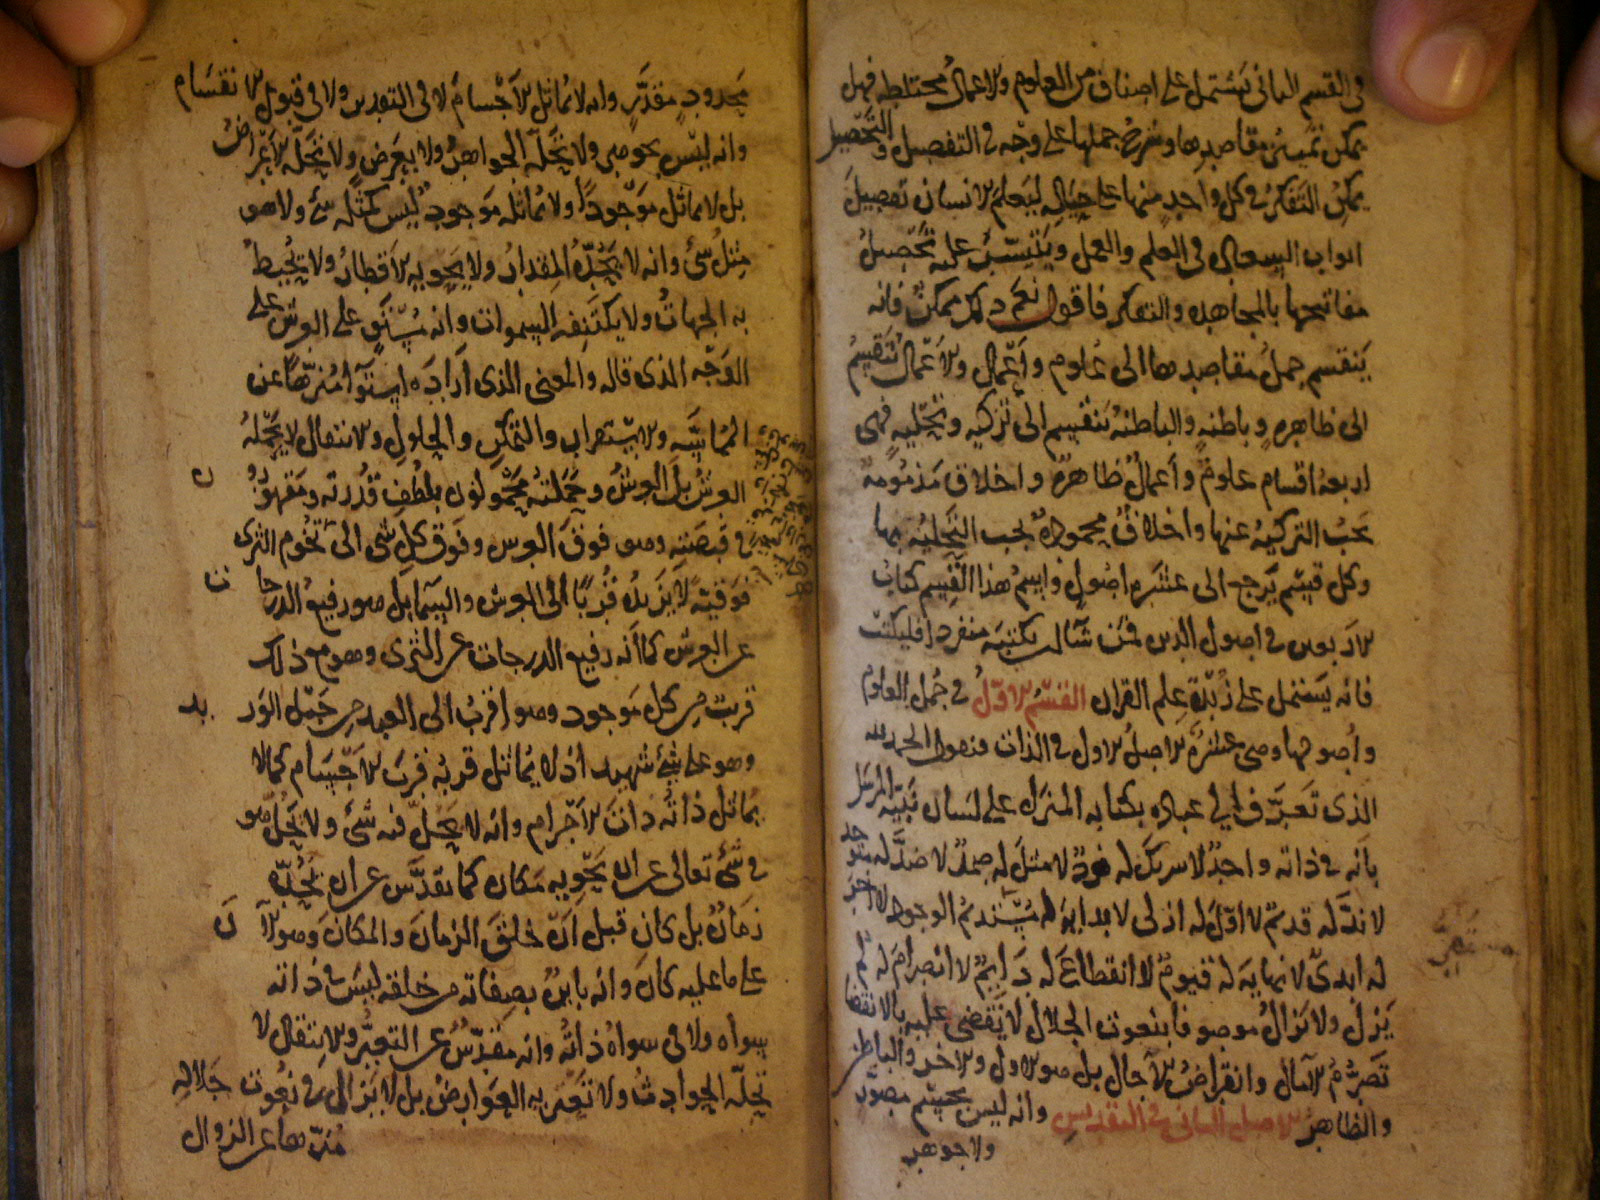 في القسم الثاني تشتمل على اصناف من العلوم والاعمال مختلطة فهل
يمكن تمييز مقاصدها وشرح جملها على وجه في التفصيل والتحصيل
يمكن التفكر في كل واحد منها على حياله ليعلم الانسان تفصيل
ابواب السعادة في العلم والعمل ويتيسر عليه تحصيل
مفاتيحها بالمجاهدة والتفكر فاقول نعم ذلك ممكن فانه
ينقسم جمل مقاصدها الى علوم واعمال والاعمال تنقسم
الى ظاهرة وباطنة والباطنة تنقسم الى تزكية وتحلية فهي
اربعة اقسام علوم واعمال ظاهرة واخلاق مذمومة
يجب التزكية عنها واخلاق محمودة يجب التحلية بها
وكل قسم يرجع الى عشرة اصول واسم هذا القسم كتاب
الاربعين في اصول الدين فمن شاء ان يكتبه منفردا فليكتب
فانه يشتمل على زبدة علم القران القسم الاول في جمل العلوم
واصولها وهي عشرة الاصل الاول في الذات فنقول الحمد لله
الذي تعرف الى عباده بكتابه المنزل على لسان نبيه المرسل
بانه في ذاته واحد لا شريك له فرد لا مثل له صمد لا ضد له متوحد
لا ند له قديم لا اول له ازلي لا بداية له مستديم الوجود لا اخر
له ابدي لا نهاية له قيوم لا انقطاع له دايم لا انصرام له لم
يزل ولا يزال موصوفا بنعوت الجلال لا يقضى عليه بالانقضا
تصرم الاماد وانقراض الاجال بل هو الاول والاخر والباطن
والظاهر الاصل الثاني في التقديس وانه ليس بجسم مصور
ولا جوهر
محدود مقدر وانه لا يماثل الاجسام لا في التقدير ولا في قبول الانقسام
وانه ليس بجوهر ولا تحله الجواهر ولا بعرض ولا تحله الاعراض
بل لا يماثل موجودا ولا يماثله موجود ليس كمثله شئ ولا هو
مثل شئ وانه لا يحده المقدار ولا يحويه الاقطار ولا يحيط
به الجهات ولا يكتنفه السموات وانه مستو على العرش على
الوجه الذي قاله والمعنى الذي اراده استوا منزها عن
المماسة والاستقرار والتمكن والحلول والانتقال لا يحمله
العرش بل العرش وحملته محمولون بلطف قدرته ومقهورون
في قبضته وهو فوق العرش وفوق كل شئ الى تخوم الثرى
فوقية لا يزيده قربا الى العرش والسما بل هو رفيع الدرجات
عن العرش كما انه رفيع الدرجات عن الثرى وهو مع ذلك
قريب من كل موجود وهو اقرب الى العبد من حبل الوريد
وهو على شئ شهيد اذ لا يماثل قربه قرب الاجسام كما لا
يماثل ذاته ذات الاجرام وانه لا يحل فيه شئ ولا يحل هو
في شئ تعالى عن ان يحويه مكان كما تقدس عن ان يحده
زمان بل كان قبل ان خلق الزمان والمكان وهو الآن
على ما عليه كان وانه باين بصفاته من خلقه ليس في ذاته
سواه ولا في سواه ذاته وانه مقدس عن التغير والانتقال لا
تحله الحوادث ولا تعتريه العوارض بل لا يزال في نعوت جلاله
منزها عن الزوال